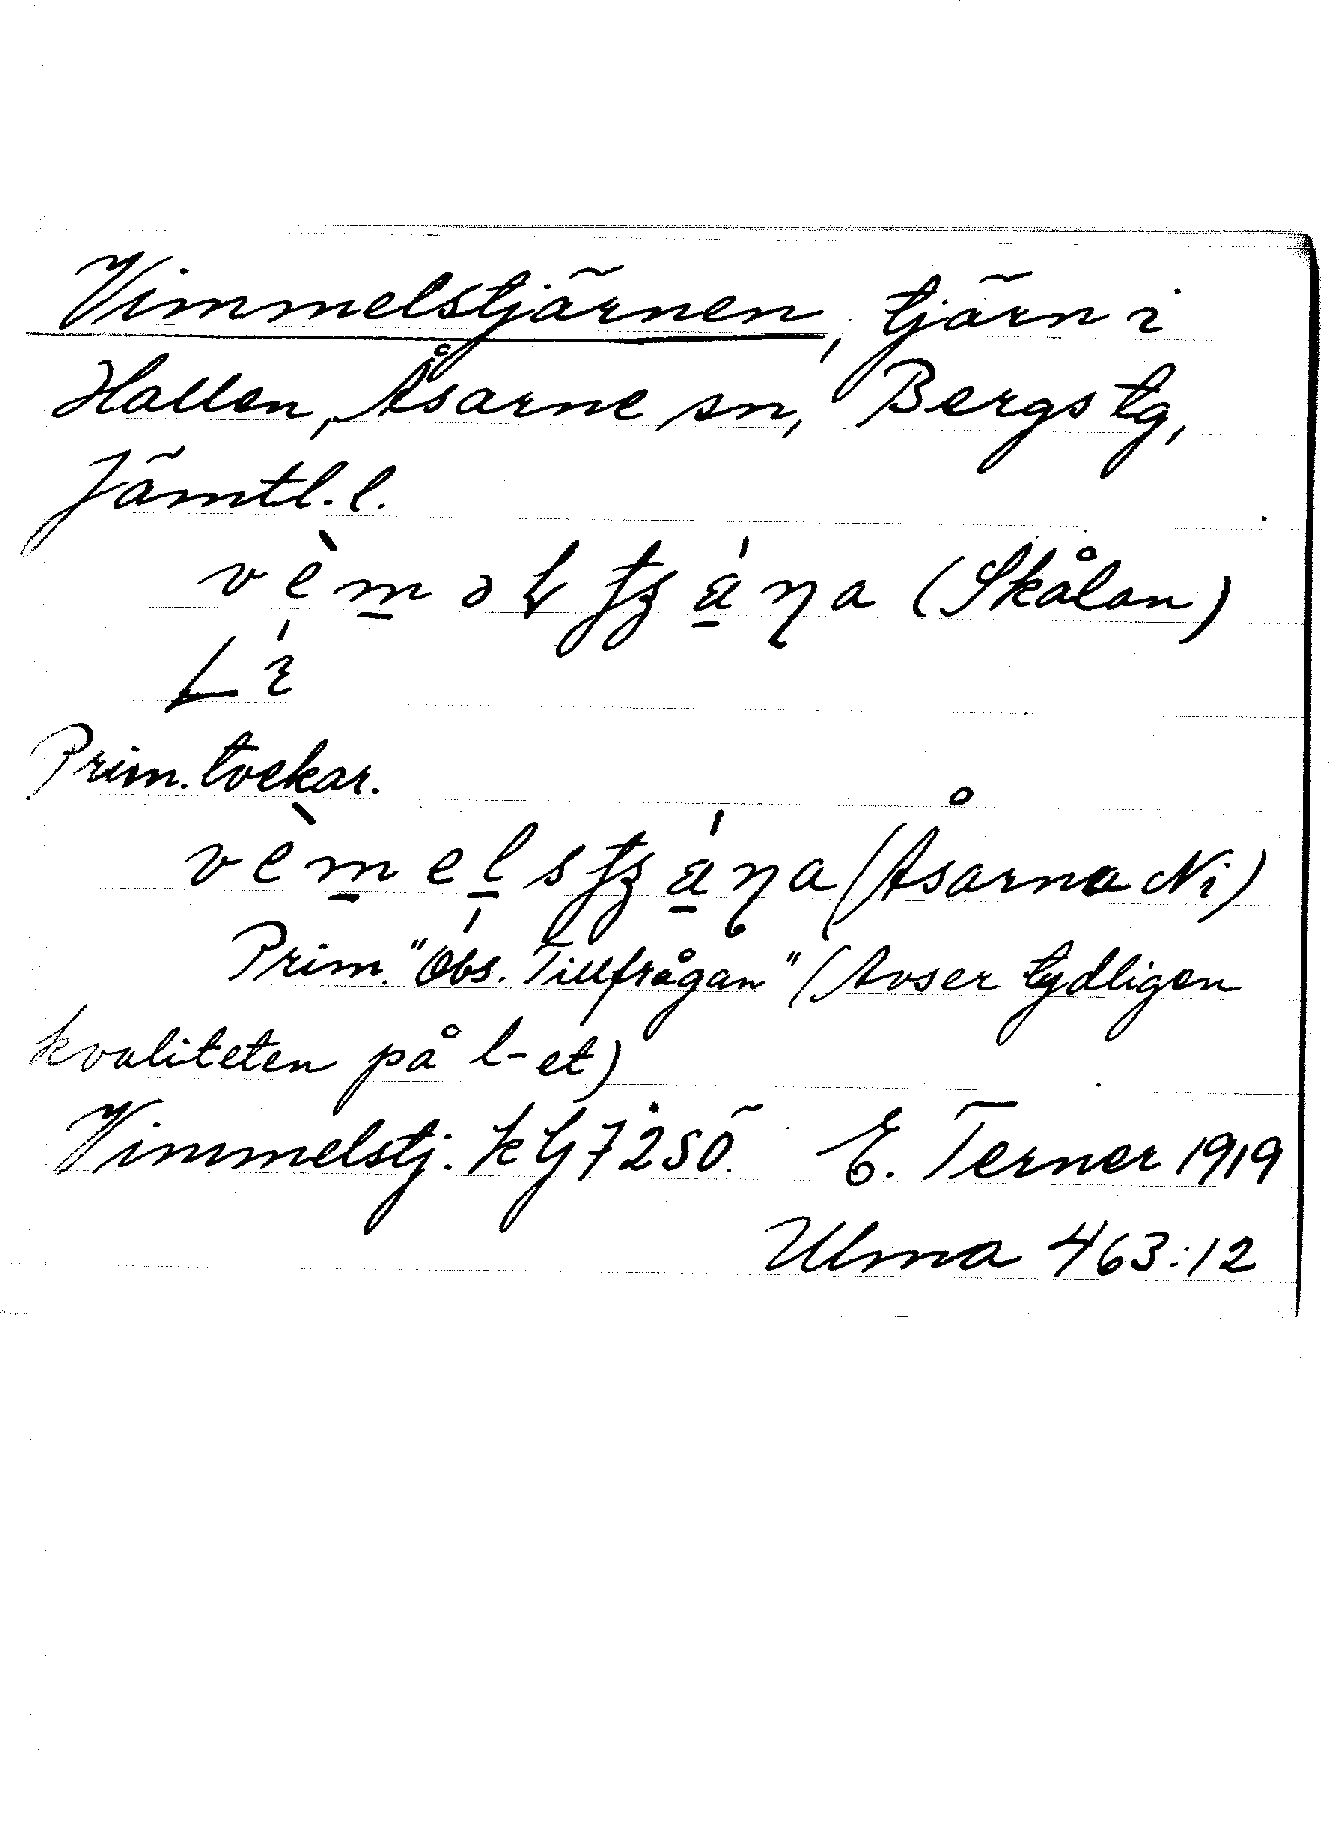 Vimmelstjärnen, tjärn i
Hallen, Åsarne sn, Bergs tg,
Jämtl. l.
(Skålan)
Prim. tvekar.
(Åsarna Ni)
Prim. "Obs. Tillfrågan" (Avser tydligen
kvaliteten på l-et)
Vimmelstj. k GJ 7 åsö E. Terner 1919
Ulma 463:12